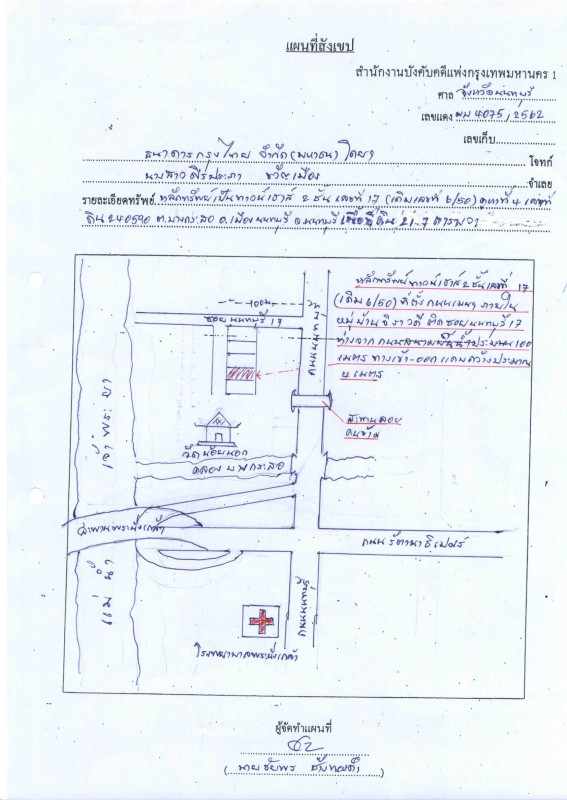 แผนที่สังเขป
สำนักงานบังคับคดีแพ่งกรุงเทพมหานคร 1
ศาล จังหวัดนนทบุรี
เลขแดง ผบ 4075/2562
เลขเก็บ
ธนาคารกรุงไทย จำกัด (มหาชน) โดยฯ โจทก์
นางสาว ศิริประภา เมือง จำเลย
รายละเอียดทรัพย์ หลักทรัพย์เป็นทาวน์เฮาส์ 2 ชั้น เลขที่ 17 (เดิมเลขที่ 6/50) เลขที่
ดิน 240590 ต.บางกระสอ อ.เมืองนนทบุรี จ.นนทบุรี เนื้อที่ดิน 21.7 ตารางวา
100 ม
ซอยนนทบุรี 17
ถนนนนทบุรี
หลักทรัพย์ทาวน์เฮาส์ 2 ชั้น เลขที่ 17
(เดิม 6/50) ที่ตั้ง ถนนเมนฯ ภายใน
หมู่บ้านจิราวดี ติดซอยนนทบุรี 17
ห่างจากถนนสนามบินน้ำประมาณ 100
เมตร ทางเข้า-ออก แคบกว้างประมาณ
4 เมตร
สะพานลอย
คนข้าม
วัดน้อยนอก
คลองบางกระสอ
แม่น้ำ เจ้าพระยา
สะพานพระนั่งเกล้า
ถนนรัตนาธิเบศร์
ถนนนนทบุรี
โรงพยาบาลพระนั่งเกล้า
ผู้จัดทำแผนที่